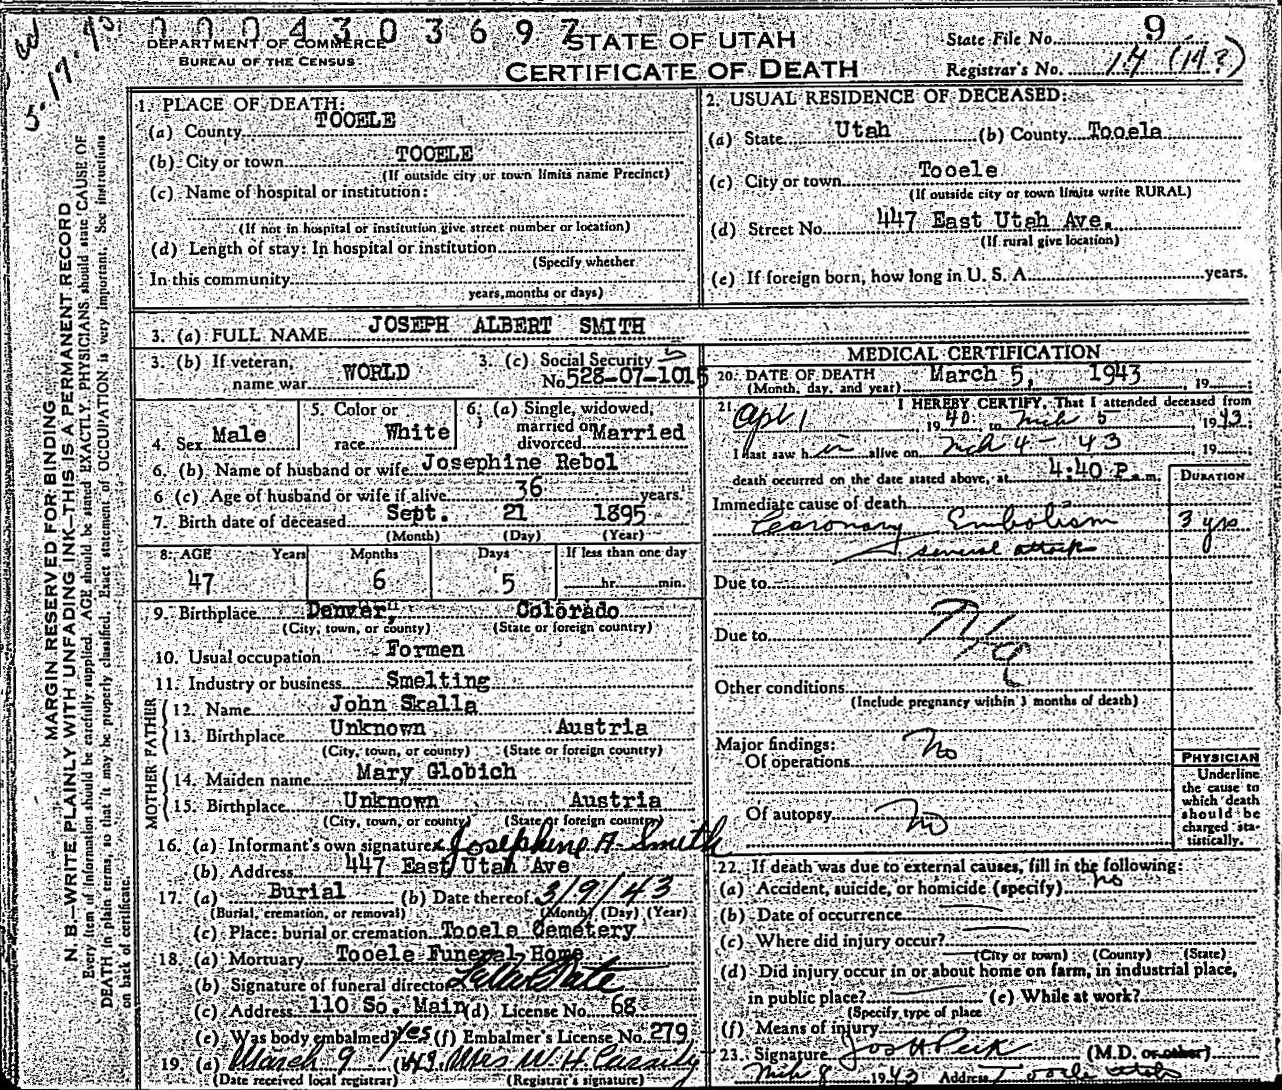 0004303697
DEPARTMENT OF COMMERCE
BUREAU OF THE CENSUS
STATE OF UTAH
CERTIFICATE OF DEATH
State File No. 9
Registrar's No. 14 (14?)
5-17-90
MARGIN RESERVED FOR BINDING
N. B.—WRITE PLAINLY WITH UNFADING INK—THIS IS A PERMANENT RECORD
Every item of information should be carefully supplied. AGE should be stated EXACTLY. PHYSICIANS should state CAUSE OF
DEATH in plain terms, so that it may be properly classified. Exact statement of OCCUPATION is very important. See instructions
on back of certificate.
1. PLACE OF DEATH:
(a) County TOOELE
(b) City or town TOOELE
(If outside city or town limits name Precinct)
(c) Name of hospital or institution:
(If not in hospital or institution give street number or location)
(d) Length of stay: In hospital or institution
(Specify whether
In this community
years, months or days)
2. USUAL RESIDENCE OF DECEASED:
(a) State Utah (b) County Tooela
(c) City or town Tooele
(If outside city or town limits write RURAL)
(d) Street No. 447 East Utah Ave.
(If rural give location)
(e) If foreign born, how long in U. S. A. years.
3. (a) FULL NAME JOSEPH ALBERT SMITH
3. (b) If veteran,
name war WORLD
3. (c) Social Security
No. 528-07-1015
4. Sex Male
5. Color or
race White
6. (a) Single, widowed,
married or
divorced Married
6. (b) Name of husband or wife Josephine Rebol
6 (c) Age of husband or wife if alive 36 years.
7. Birth date of deceased Sept. 21 1895
(Month) (Day) (Year)
8. AGE Years Months Days If less than one day
47 6 5 hr. min.
9. Birthplace Denver, Colorado
(City, town, or county) (State or foreign country)
10. Usual occupation Formen
11. Industry or business Smelting
FATHER
12. Name John Skalla
13. Birthplace Unknown Austria
(City, town, or county) (State or foreign country)
MOTHER
14. Maiden name Mary Globich
15. Birthplace Unknown Austria
(City, town, or county) (State or foreign country)
16. (a) Informant's own signature x Josephine A Smith
(b) Address 447 East Utah Ave
17. (a) Burial (b) Date thereof 3/9/43
(Burial, cremation, or removal) (Month) (Day) (Year)
(c) Place: burial or cremation Tooele Cemetery
18. (a) Mortuary Tooele Funeral Home
(b) Signature of funeral director
(c) Address 110 So. Main (d) License No. 68
(e) Was body embalmed yes (f) Embalmer's License No. 279
19. (a) March 9 (b) Mrs W H Cassity
(Date received local registrar) (Registrar's signature)
MEDICAL CERTIFICATION
20. DATE OF DEATH March 5, 1943, 19
(Month, day, and year)
21. I HEREBY CERTIFY, That I attended deceased from
Apr 1, 1940, to Mch 5, 1943.
I last saw him alive on Mch 4 - 43, 19
death occurred on the date stated above, at 4:40 P.m.
DURATION
Immediate cause of death
Coronary Embolism 3 yrs
several attack
Due to
Due to
Other conditions
(Include pregnancy within 3 months of death)
Major findings:
Of operations No
Of autopsy No
PHYSICIAN
Underline
the cause to
which death
should be
charged sta-
tistically.
22. If death was due to external causes, fill in the following:
(a) Accident, suicide, or homicide (specify) no
(b) Date of occurrence
(c) Where did injury occur?
(City or town) (County) (State)
(d) Did injury occur in or about home on farm, in industrial place,
in public place? (e) While at work?
(Specify type of place
(f) Means of injury
23. Signature Jos H Peck (M.D. or other)
Mch 8 1943 Address Tooele Utah